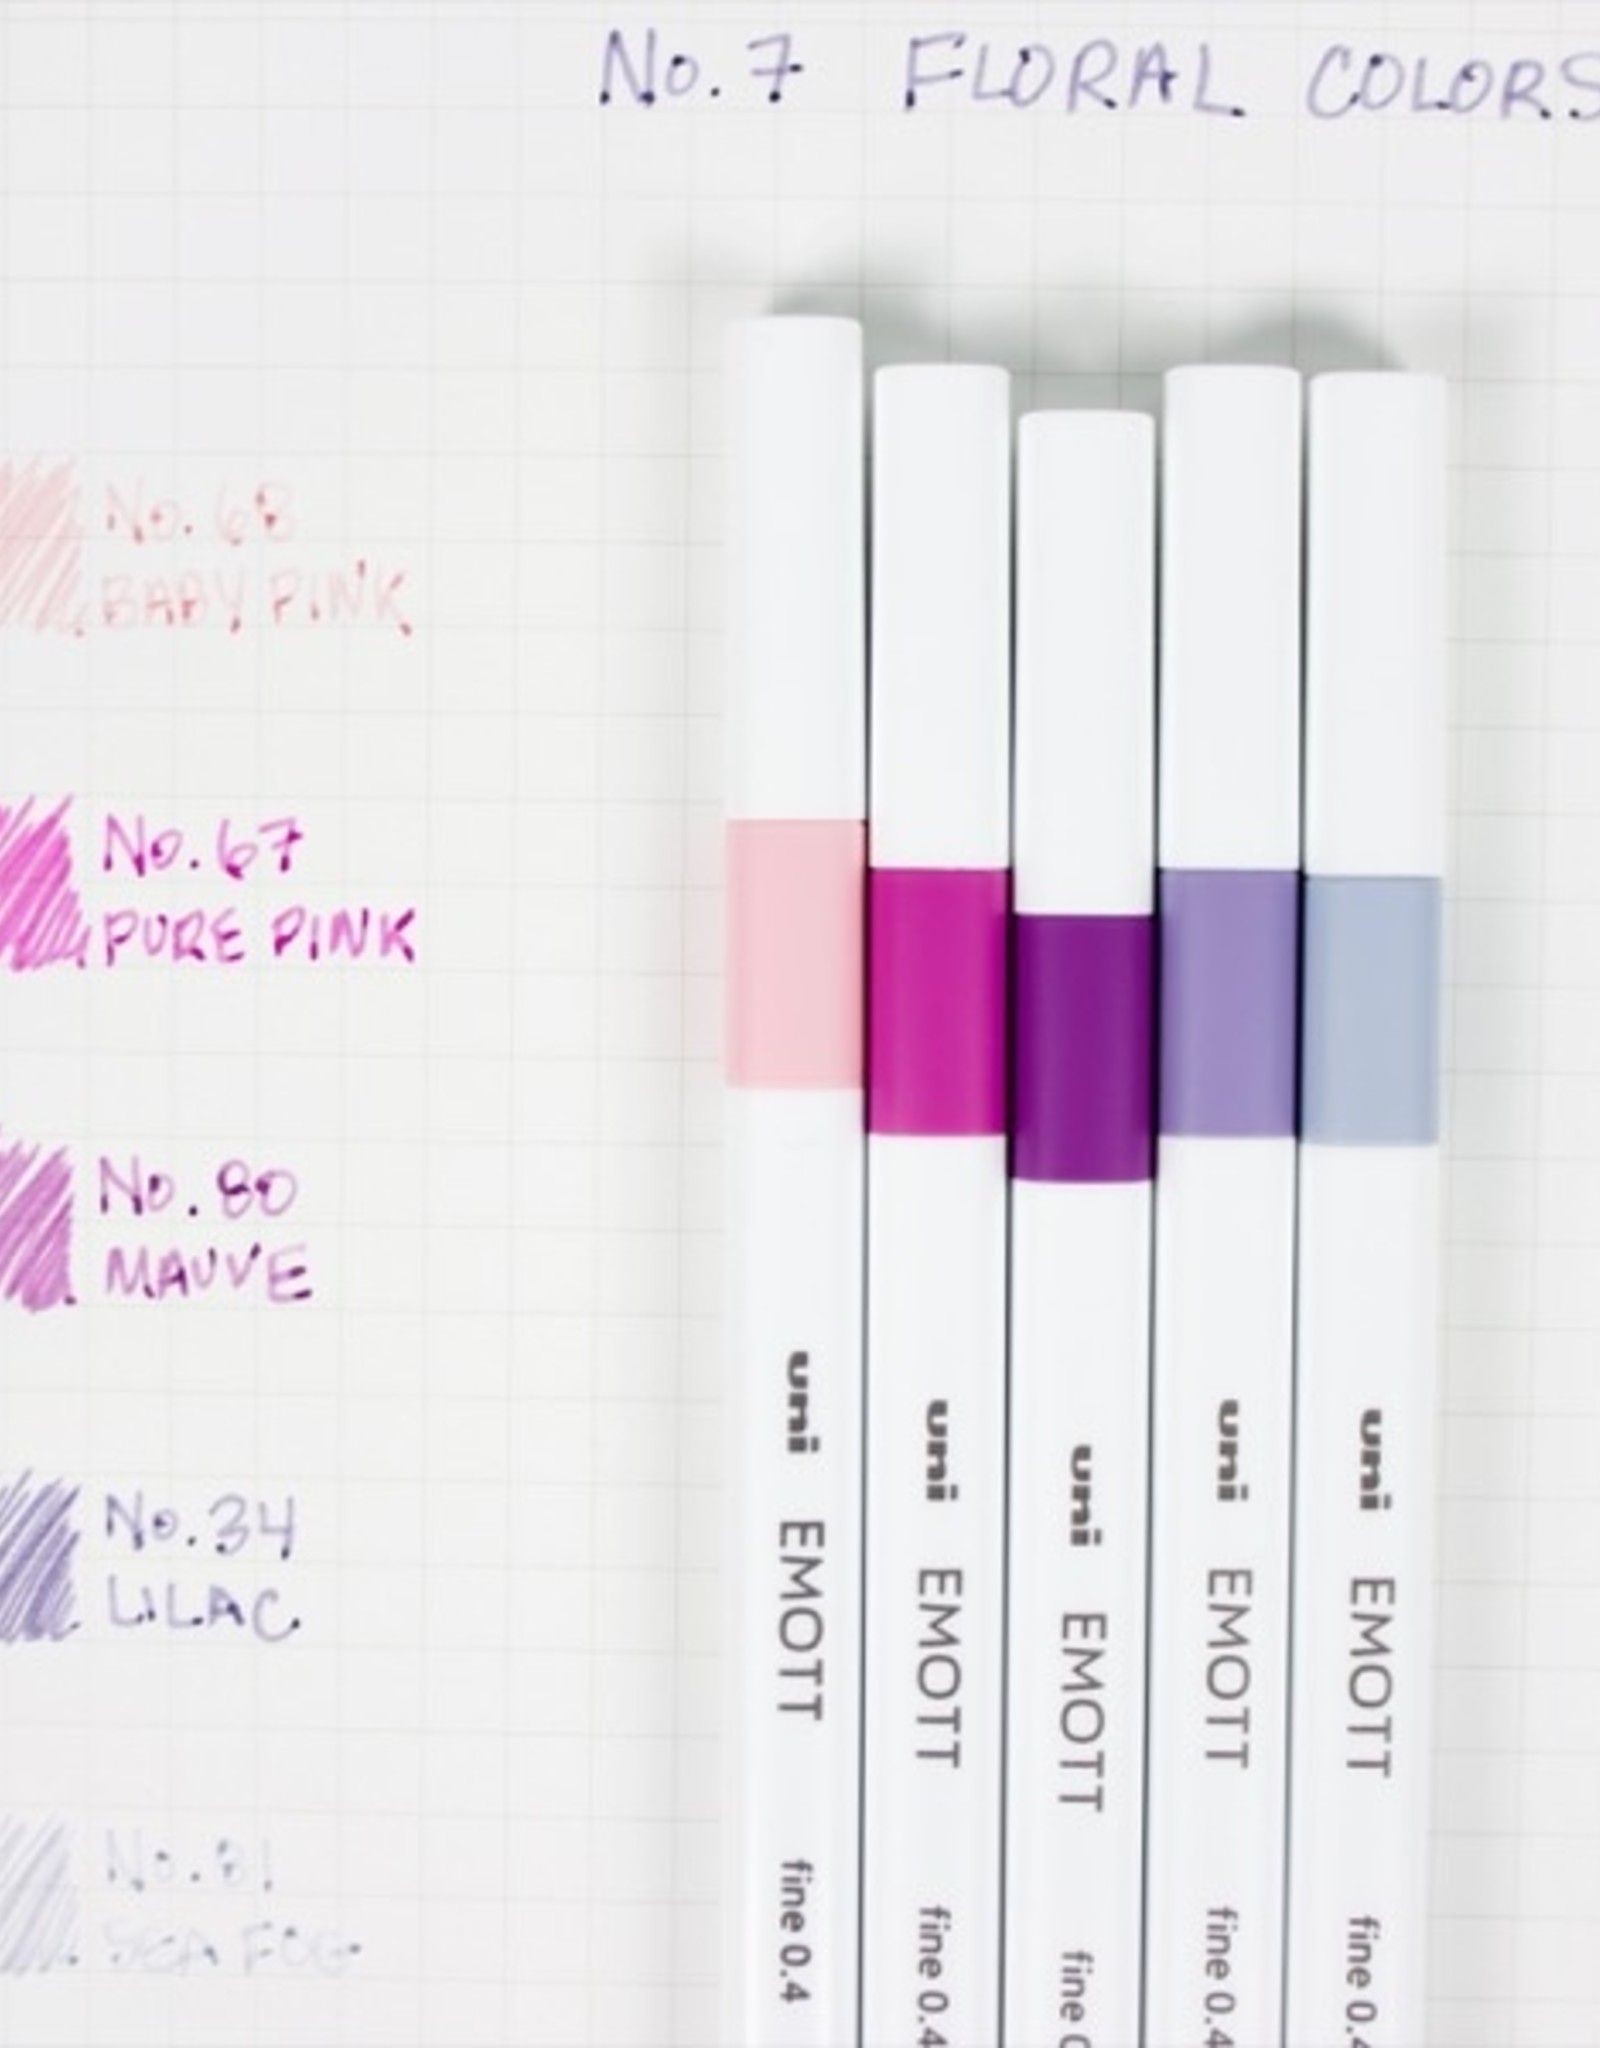 No. 7 FLORAL COLORS
No. 68
BABY PINK
No. 67
PURE PINK
No. 80
MAUVE
No. 34
LILAC
No. 81
SEA FOG
uni EMOTT fine 0.4
uni EMOTT fine 0.4
uni EMOTT fine 0
uni EMOTT fine 0.4
uni EMOTT fine 0.4